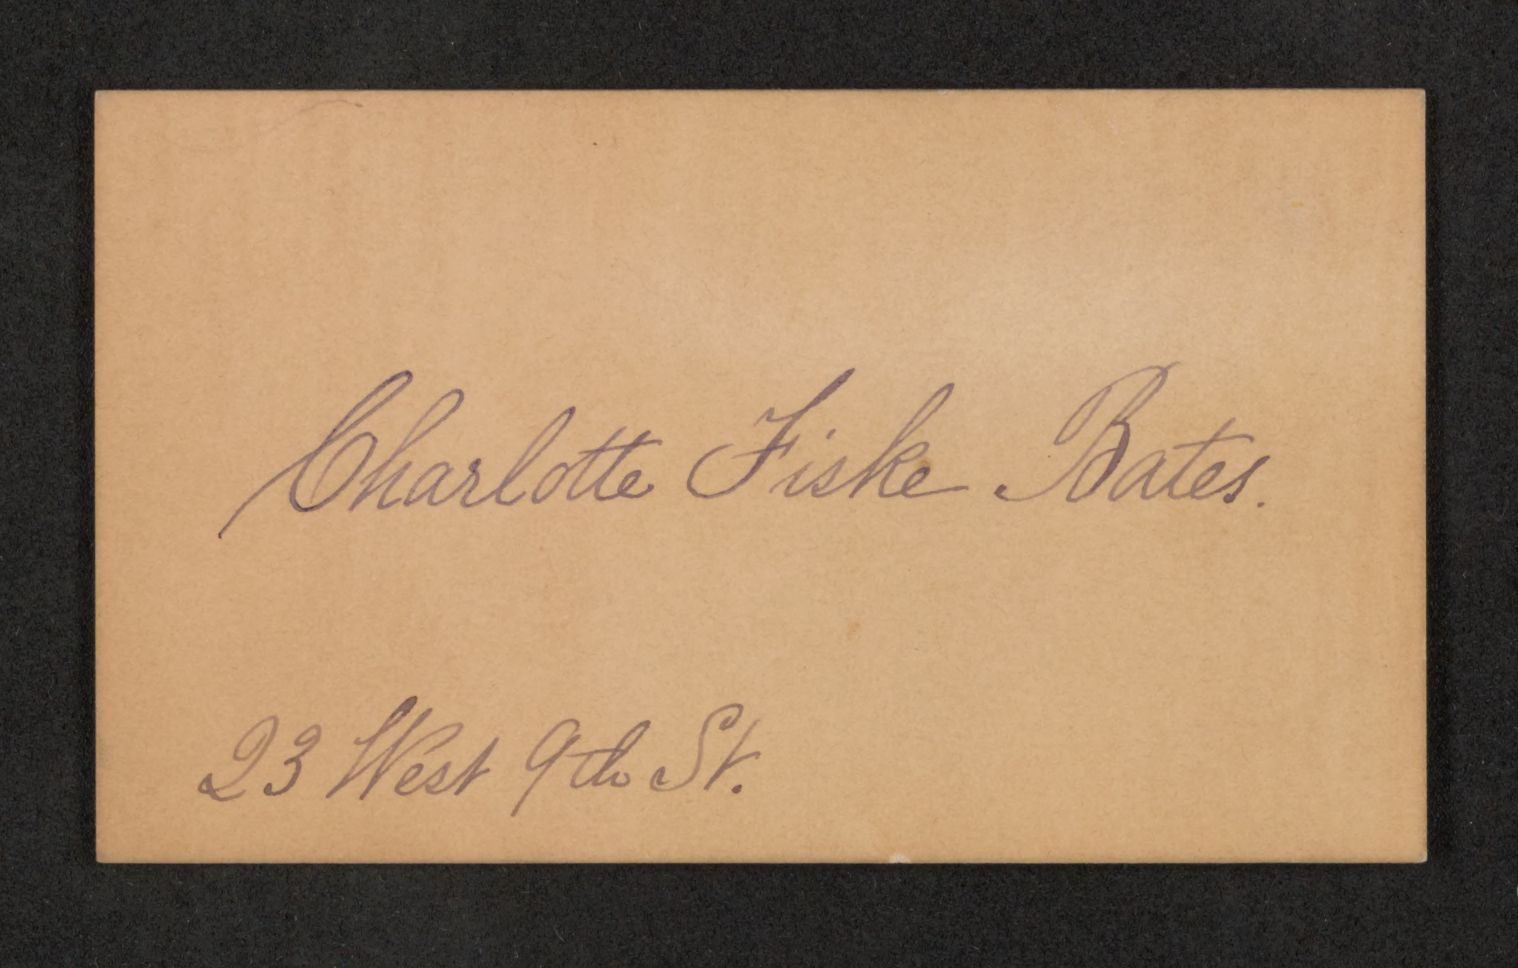 Charlotte Fiske Bates.
23 West 9th St.